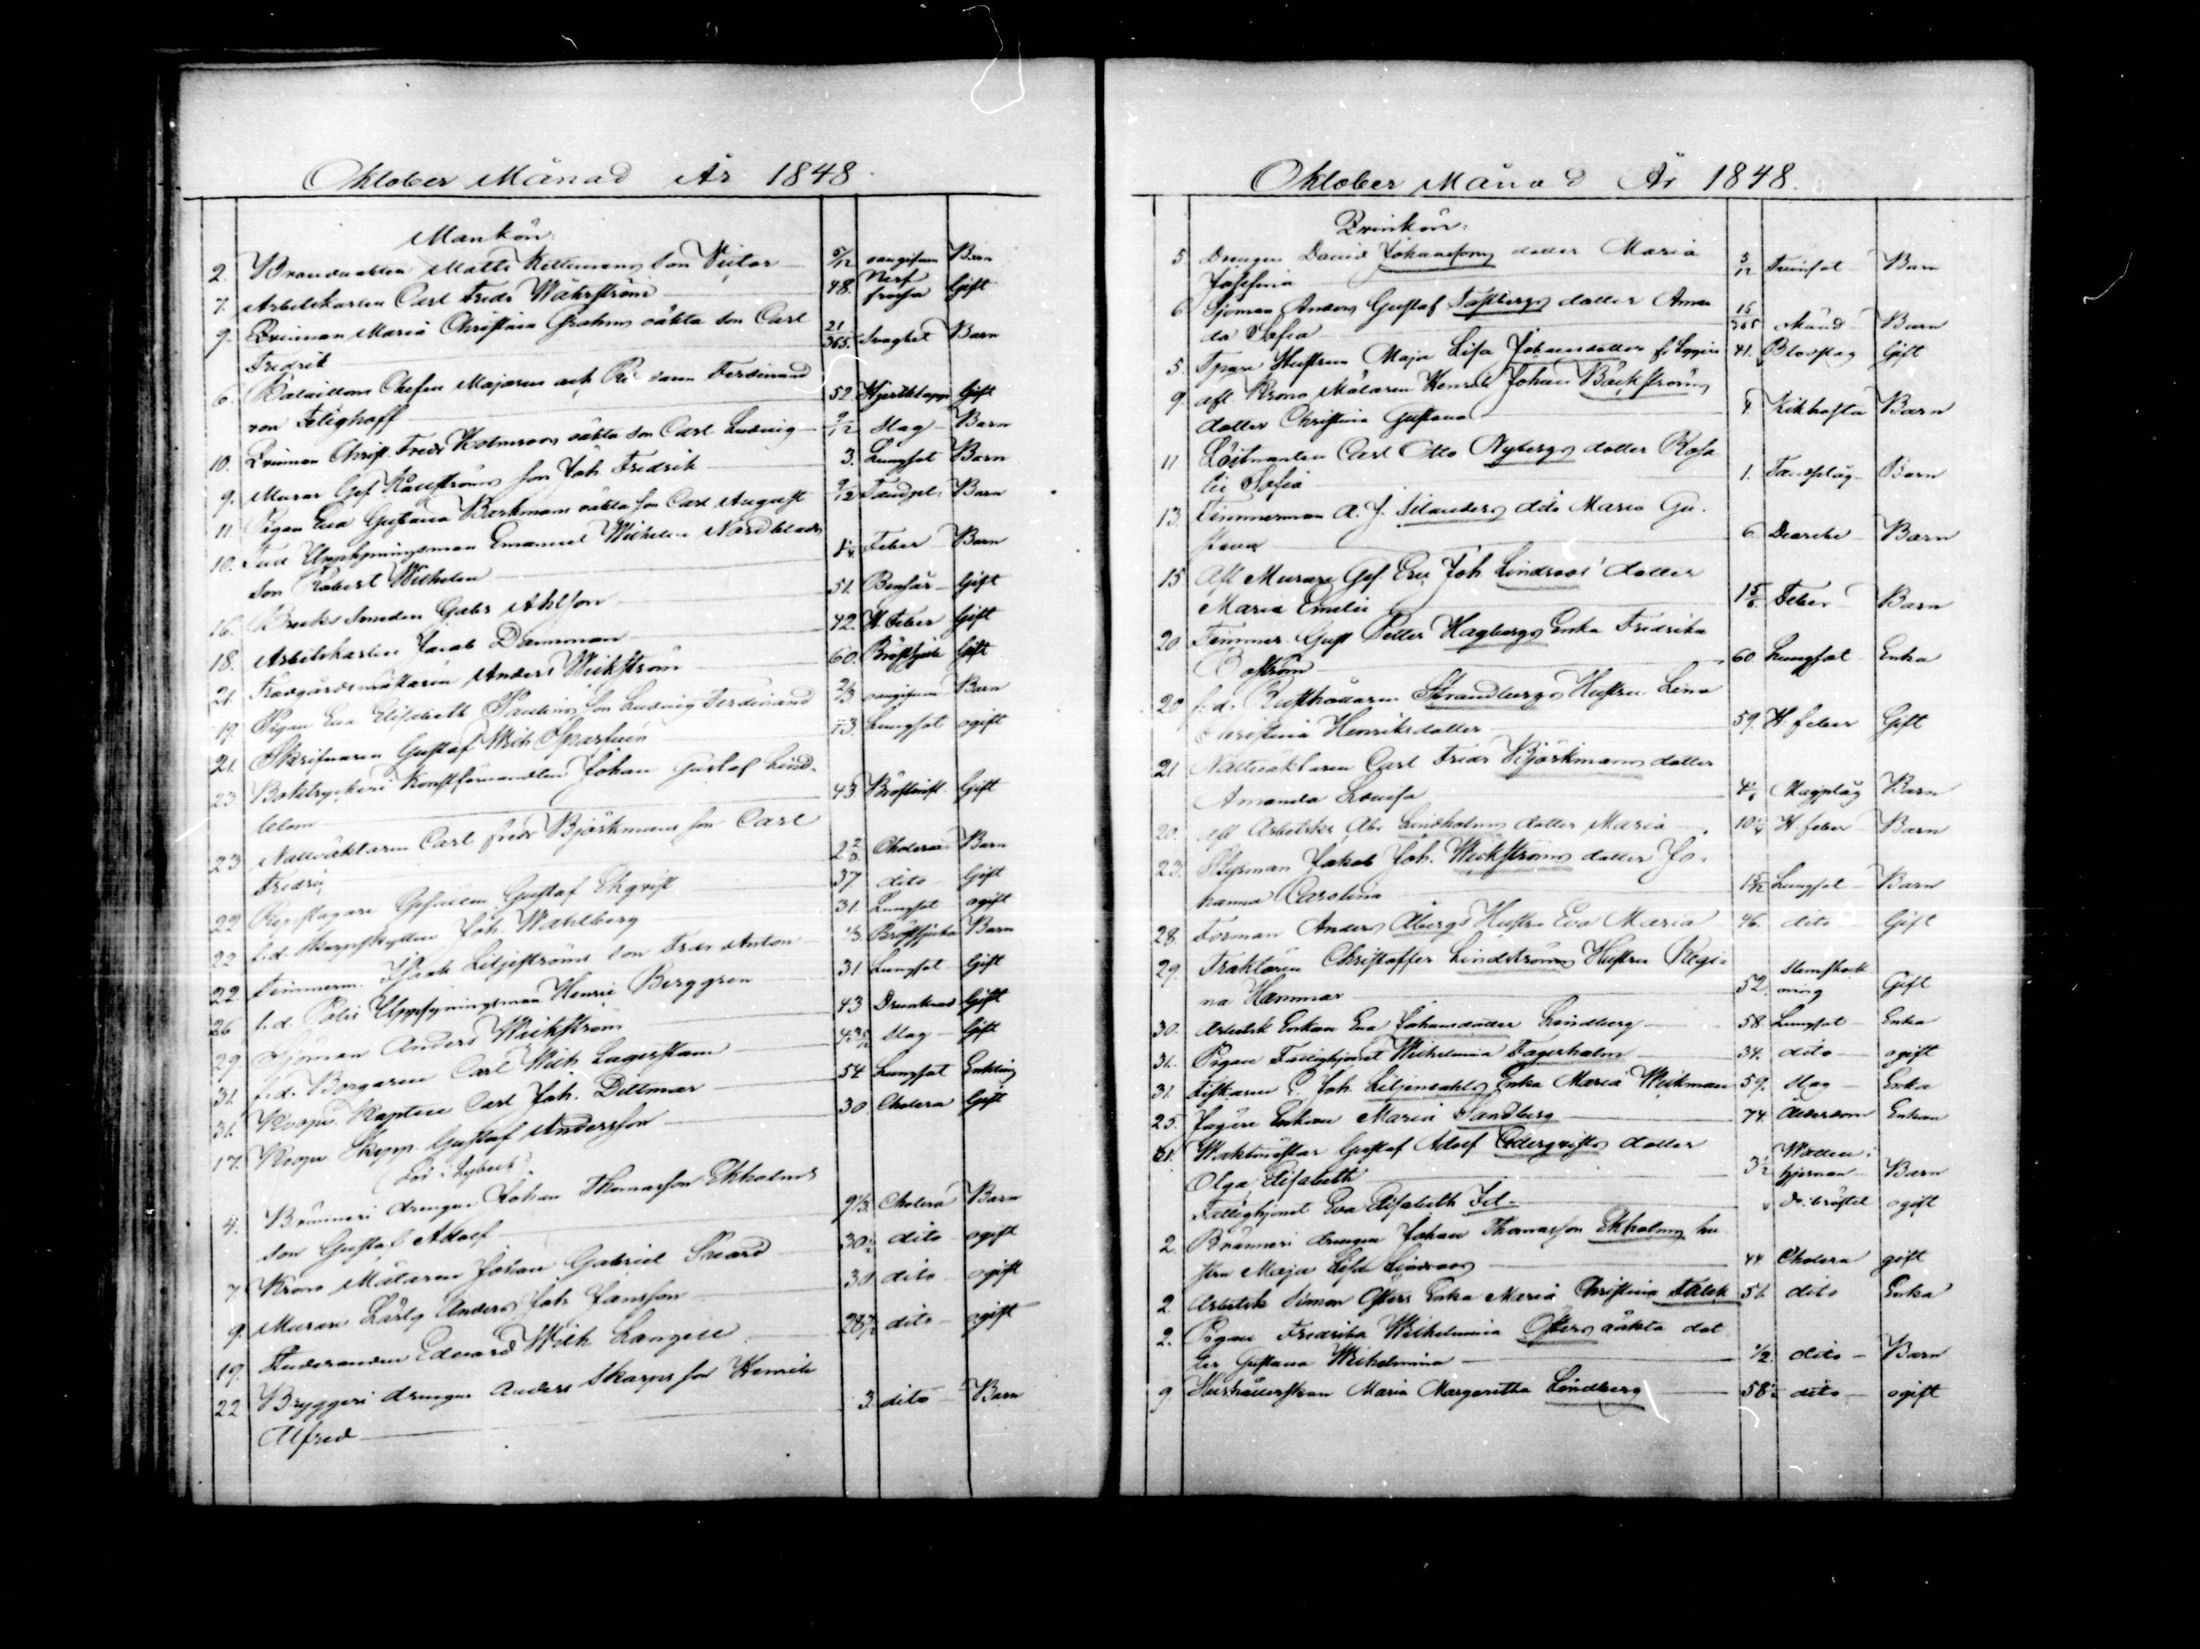 Oktober Månad År 1848.
Mankön.
2. Brandvakten Matts Kellmans son Victor 5/12 oangifven Barn
7. Arbetskarlen Carl Fredr Wahrström 48. Nerf Gift
9. Qvinnan Maria Christina Grahns oäkta son Carl 21/365. Svaghet Barn
Fredrik
6. Bataillons Chefen Majoren och Riddaren Ferdinand 52 Gift
von
10. Qvinnan Christ. Fredr Holmroos oäkta son Carl Ludvig 9/12 Slag Barn
9. Murar Ges son Joh Fredrik 3. Lungsot Barn
11 Pigan Eva Gustava Berkmans oäkta son Carl August 9/12 Tandpl. Barn
10. Uppsyningsman Emanuel Wilhelm Nordblads
son Robert Wilhelm Feber Barn
16. Bruks Smeden Gabr Ahlson 51. Bensår Gift
18. Arbetskarlen Jacob Damman 42. N. Feber Gift
21. Trädgårdsmästaren Anders Wickström 60. Bröstsjuk Gift
19. Pigan Eva Elisabeth son Ludvig Ferdinand 2/3 oangifven Barn
21. Skrifvaren Gustaf Wilh 73. Lungsot ogift
23. Boktryckeri Konstförvandten Johan Gustaf Lind-
blom 43 Gift
23 Nattväktaren Carl Fredr Björkmans son Carl
Fredrik Cholera Barn
22 Repslagare Gesällen Gustaf Ekqvist 37 dito Gift
22 f.d. Skarpskytten Joh. Wahlberg 31. Lungsot ogift
22 Timmerm. Isaak Liljeströms son Fredr Anton 1/3. Bröstsjuka Barn
26 f.d. Polis Uppsyningsman Henric Berggren 31 Lungsot Gift
29 Sjöman Anders Wickström 43 Drunknad Gift
31. f.d. Borgaren Carl Wilh Lagerstam Slag Gift
31. Koopv. Kapten Carl Joh. Dittmar 54 Lungsot Enkling
17. Koopv. Skepp. Gustaf Andersson 30 Cholera Gift
(död i Lybeck).
4. Bränneri drengen Johan Thomasson Ekholms
son Gustaf Adolf 9 1/3. Cholera Barn
7 Krono Mätaren Johan Gabriel 30 1/2 dito ogift
9 Murare Lärlg Anders Joh Jansson 30 dito ogift
19. Studeranden Edvard Wilh Langell dito ogift
22 Bryggeri drengen Anders Skarps son Henrik
Alfred 3. dito Barn
Oktober Månad År 1848.
Qvinkön.
5 Drengen David Johanssons dotter Maria
Josefina 3/12 Barn
6 Sjöman Anders Gustaf dotter Aman
da Sofia 15/365 Barn
5. Hustrun Maja Lisa Johansdotter 41. Blodslag Gift
9 Aft Krono Mätaren Henrik Johan Bäckströms
dotter Christina Gustava 4. Kikhosta Barn
11 Löitnanten Carl Otto Nybergs dotter Rosa
lie Sofia 1. Tandplåg Barn
13. Timmerman A. J. Silanders dito Maria Gu-
stava 6 Diarrhe Barn
15 Aft Murare Ges. Eric Joh Lindroos' dotter
Maria Emelie Feber Barn
20 Timmer. Gust Petter Hagbergs Enka Fredrika
Boström 60. Lungsot Enka
20 f.d. Rusthållaren Strandbergs Hustru Lena
Christina Henriksdotter 59. N feber Gift
21 Nattväktaren Carl Fredr Björkmans dotter
Amanda Lovisa Magplåg Barn
20. Aft Arbetsk Abr Lindholms dotter Maria N feber Barn
23. Styrman Jakob Joh. Wickströms dotter Jo-
hanna Carolina Lungsot Barn
28. Forman Anders Åbergs Hustru Eva Maria 46. dito Gift
29. Traktören Christoffer Lindströms Hustru Regi-
na Hammar 52. Gift
30. Arbetsk Enkan Eva Johansdotter Lindberg 58. Lungsot Enka
31. Pigan Fattighjonet Wilhelmina Fagerholm 34. dito ogift
31. Fiskaren C. Joh. Liljendahls Enka Maria Wickman 59. Slag Enka
25. Jägare Enkan Maria Sandberg 74. Ålderdom Enkan
31. Waktmästar Gustaf Adolf Cederqvists dotter
Olga Elisabeth 3 1/2 Watten i hjernan Barn
Fattighjonet Eva Elisabeth ogift
2 Bränneri drengen Johan Thomasson Ekholms hu-
stru Maja Lisa Lindroos 44 Cholera gift
2. Arbetsk Simon Östers Enka Maria Christina Falck 51. dito Enka
2. Pigan Fredrika Wilhelmina Östers oäkta dot-
ter Gustava Wilhelmina 1/2. dito Barn
9. Hushållerskan Maria Margaretha Lindberg 58 dito ogift